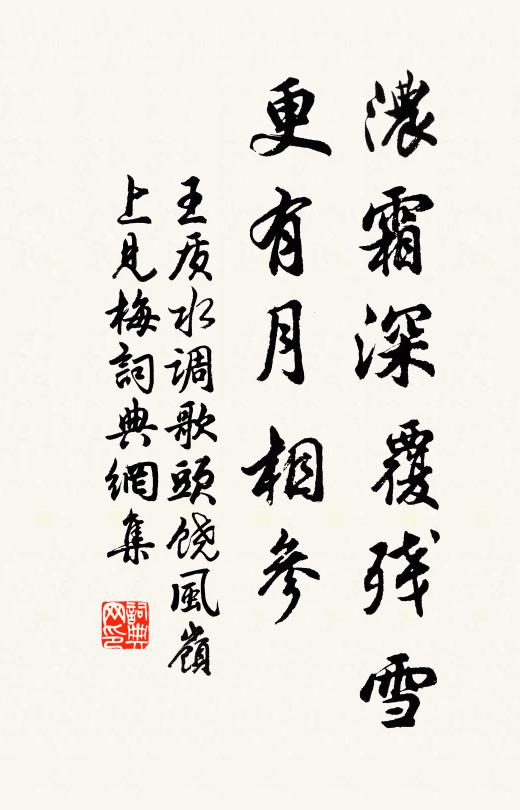 濃霜深覆残雪
更有月相參
王质水调歌頭饶風嶺
上見梅詞典網集
詞典網印